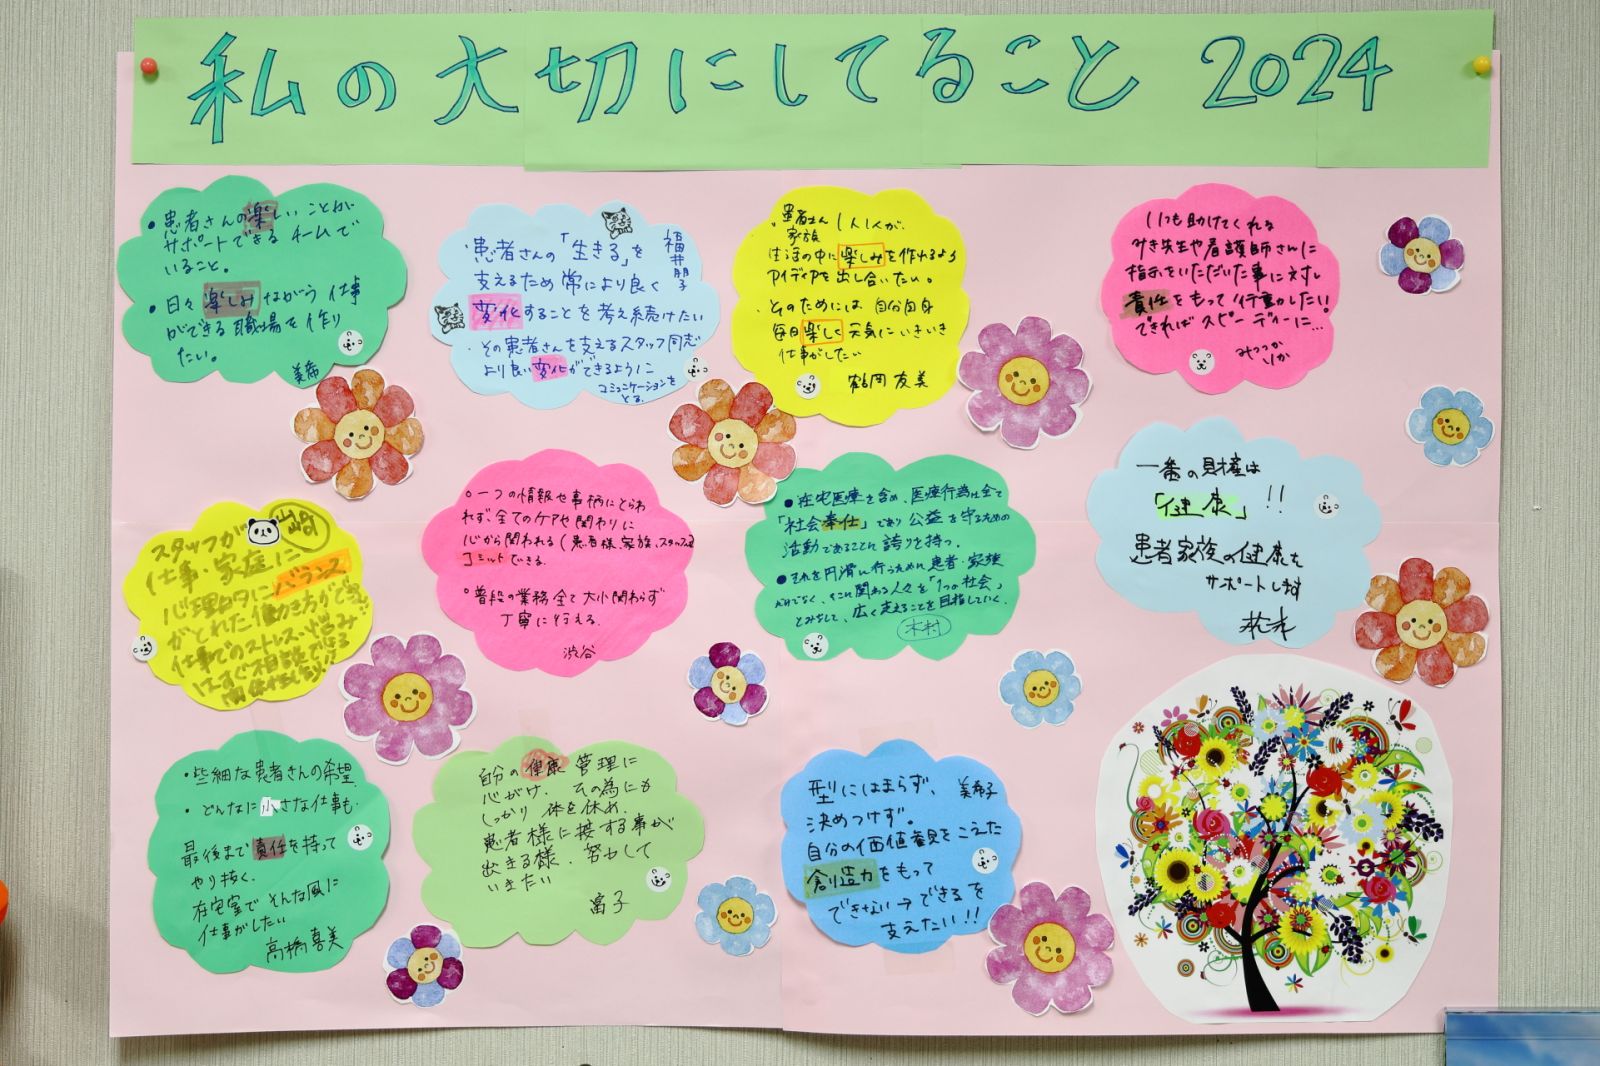 私の大切にしてること 2024
・患者さんの楽しいことが
サポートできる チームで
いること。
・日々 楽しみながら 仕事
ができる 職場を 作り
たい。
美希
福井朋子
・患者さんの「生きる」を
支えるため 常により良く
変化することを 考え続けたい
・その患者さんを支えるスタッフ同志
より良い変化ができるように
コミュニケーションを
とる.
・患者さん
家族 1人1人が、
生活の中に楽しみを作れるよう
アイディアを出し合いたい。
・そのためには 自分自身
毎日楽しく 元気にいきいき
仕事がしたい
鶴岡 友美
いつも助けてくれる
みき先生や看護師さんに
指示をいただいた事に対し
責任をもって行動したい!!
できれば スピーディーに…
スタッフが
仕事・家庭に
心理的にバランス
がとれた働き方ができ
仕事でのストレス・悩み
はすぐ相談できる
関係性
○一つの情報や事柄にとらわ
れず、全てのケアや関わりに
心から関われる(患者様、家族、スタッフ)
コミットできる.
・普段の業務全て 大小関わらず
丁寧に行える.
渋谷
●在宅医療を含め、医療行為は全て
「社会奉仕」であり 公益を守るための
活動であることに 誇りを持つ。
●それを円滑に行うために患者・家族
だけでなく、そこに関わる人々を「1つの社会」
とみなして、広く支えることを目指していく。
木村
一番の財産は
「健康」!!
患者家族の健康を
サポートします
・些細な患者さんの希望
・どんなに小さな仕事も
最後まで責任を持って
やり抜く.
在宅室で そんな風に
仕事がしたい
高橋喜美
自分の 健康 管理に
心がけ、その為にも
しっかり 体を休め、
患者様に接する事が
出きる様、努力して
いきたい
富子
型にはまらず、 美希子
決めつけず。
自分の価値観をこえた
創造力をもって
できない→できるを
支えたい!!